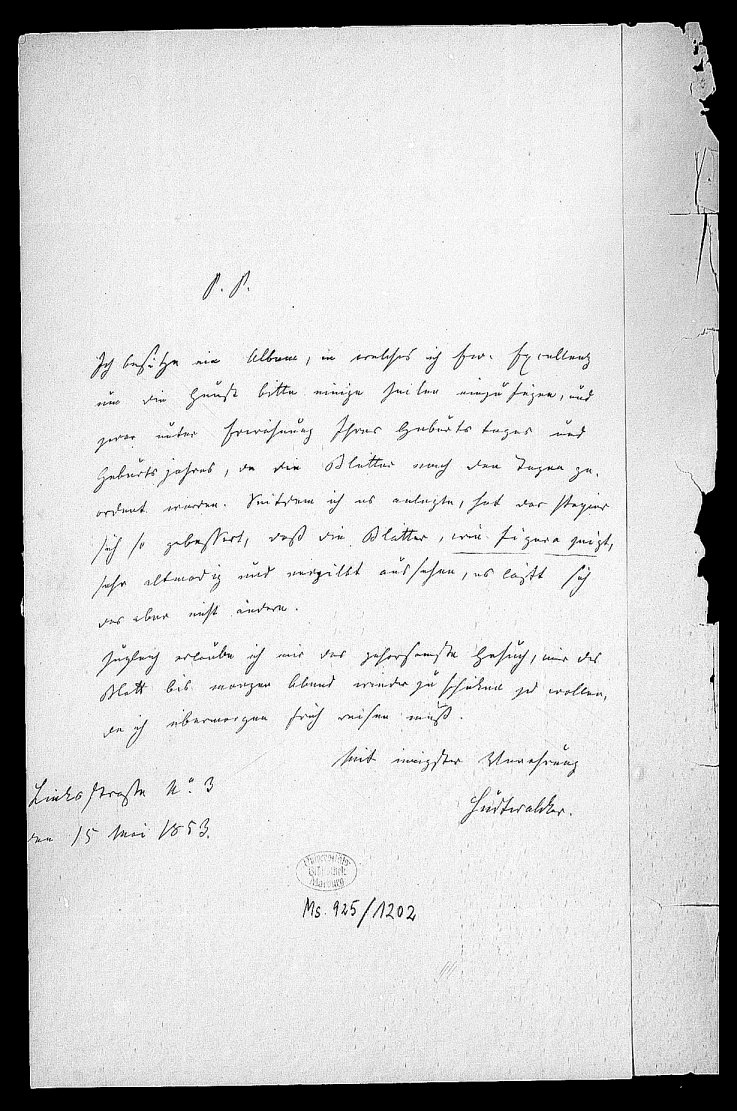 P. P.
Ich besitze ein Album, in welches ich Ew. Excellenz
um die Gunst bitte einige Zeilen einzufügen, und
zwar unter Erwähnung Ihres Geburtstages und
Geburtsjahres, da die Blätter nach den Tagen ge-
ordnet werden. Seitdem ich es anlegte, hat das Papier
sich so gebessert, daß die Blätter, wie figura zeigt,
sehr altmodig und vergilbt aussehen, es läßt sich
das aber nicht ändern.
Zugleich erlaube ich mir das gehorsamste Gesuch, mir das
Blatt bis morgen Abend wieder zu schicken zu wollen,
da ich übermorgen früh reisen muß.
Mit innigster Verehrung
Hudtwalcker.
Linksstraße No. 3
den 15 Mai 1853.
Universitäts
Bibliothek
Marburg
Ms. 925/1202